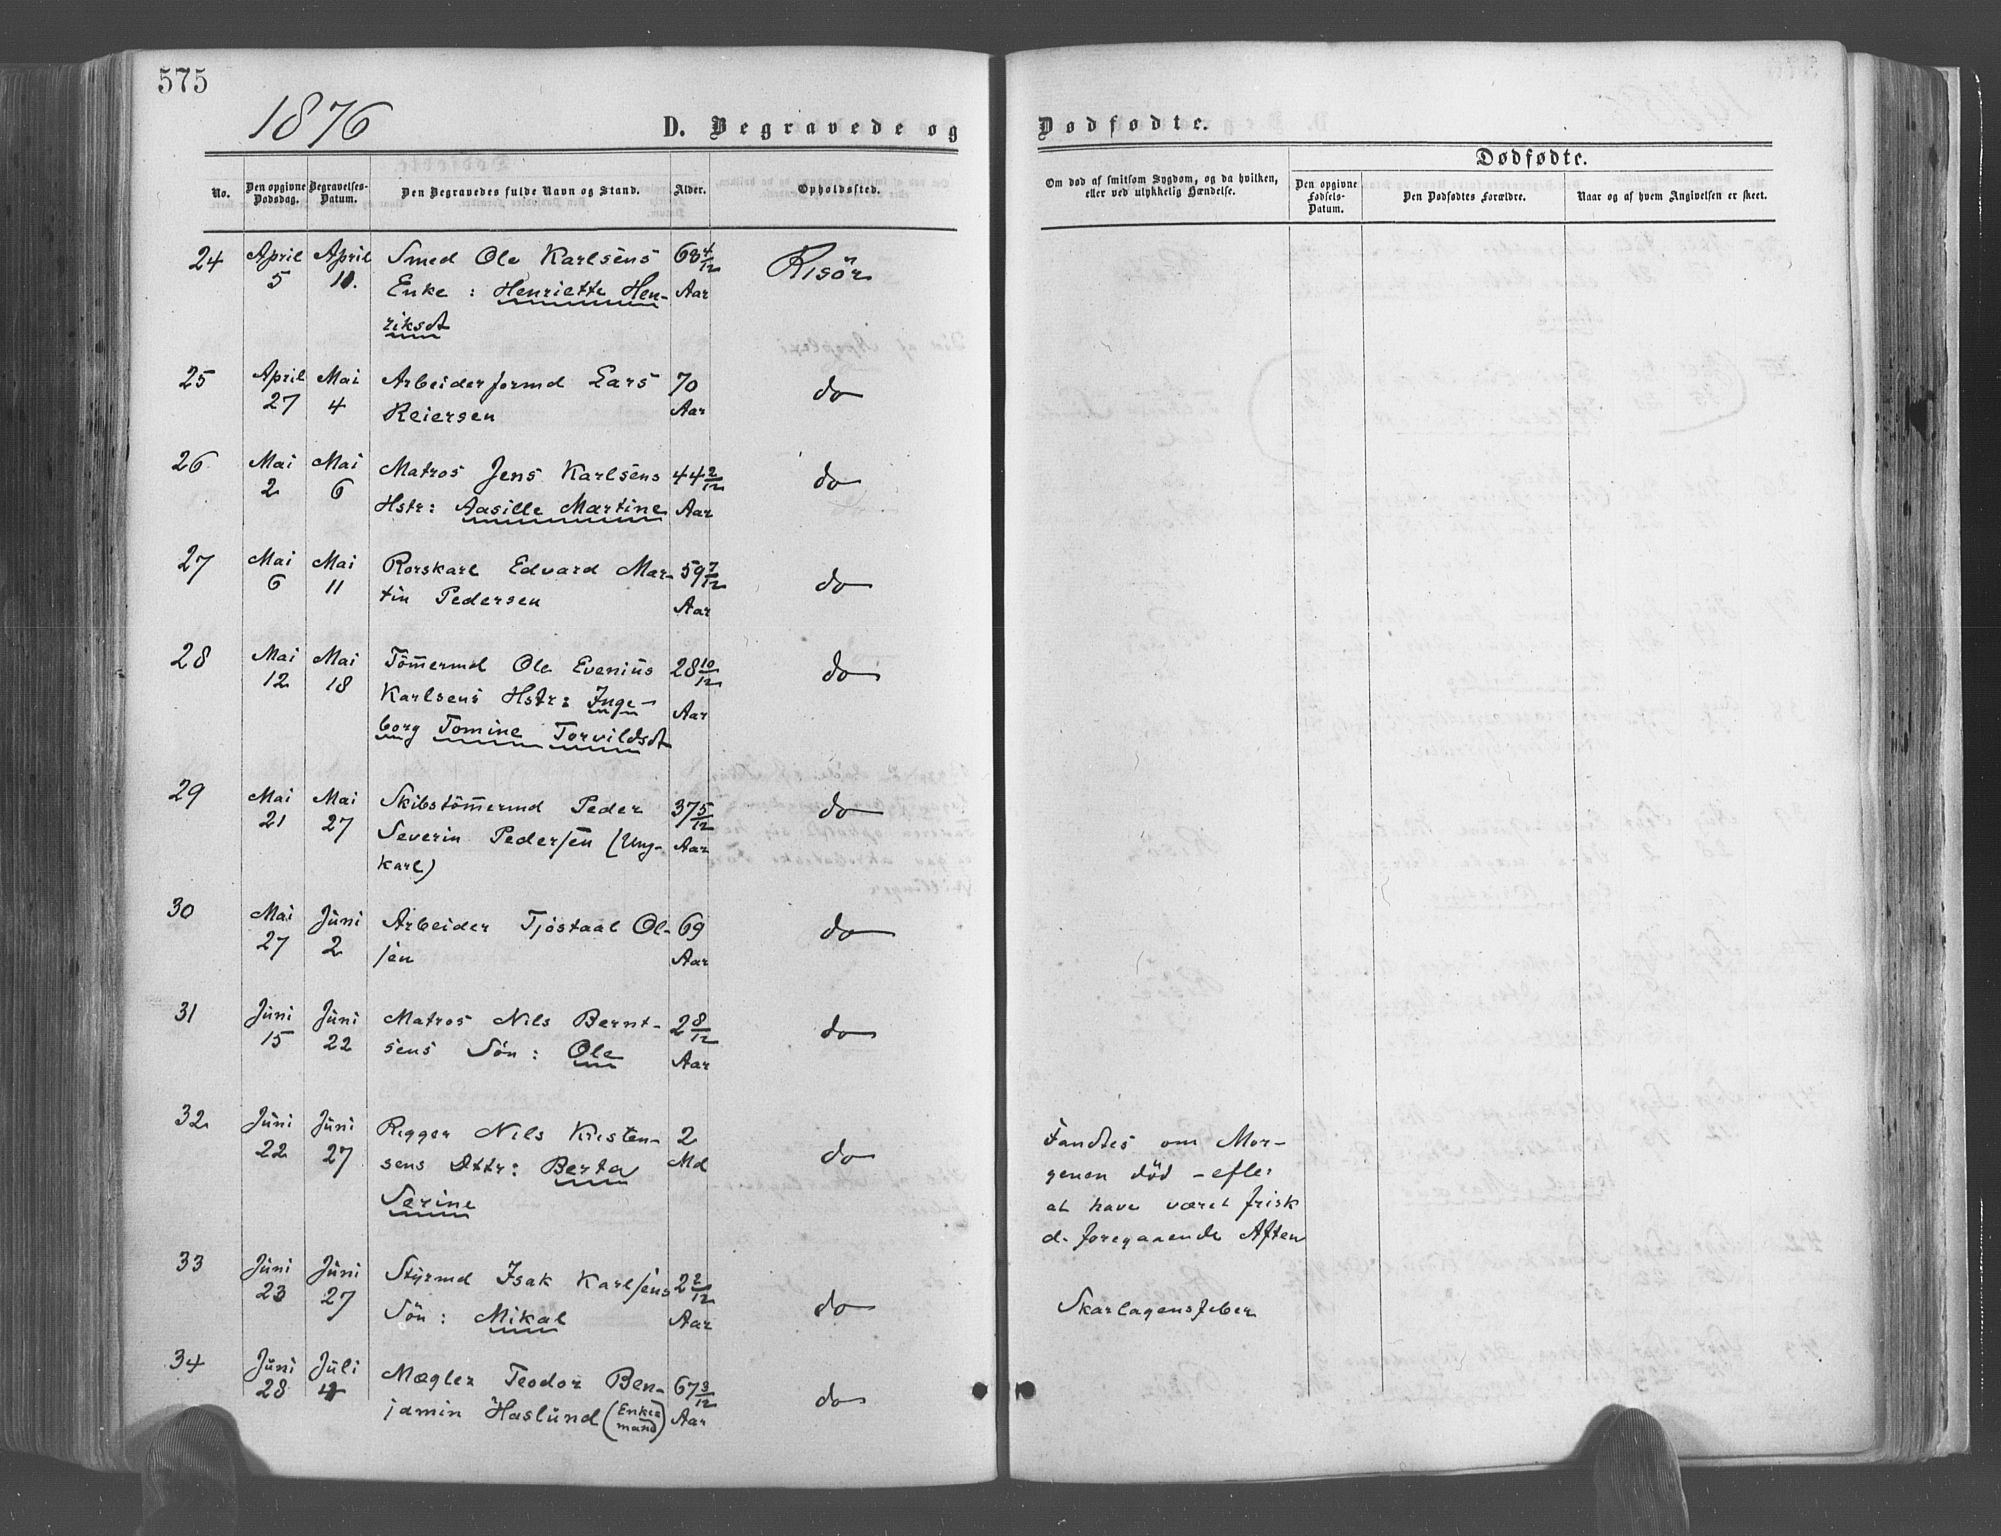 575
1876
D. Begravede og Dødfødte.
Dødfødte.
No.
Den opgivne Dødsdag.
Begravelses-Datum.
Den Begravedes fulde Navn og Stand.
Alder.
Opholdssted.
Om død af smitsom Sygdom, og da hvilken,
eller ved ulykkelig Hændelse.
Den opgivne Fødsels-Datum.
Den Dødfødtes Forældre.
Naar og af hvem Angivelsen er skeet.
24 April April Smed Ole Karlsens 68 4/12 Risör
5 10. Enke : Henriette Hen- Aar
riksdt
25 April Mai Arbeiderformd Lars 70 do
27 4 Reiersen Aar
26 Mai Mai Matros Jens Karlsens 44 2/12 do
2 6 Hstr: Aasille Martine Aar
27 Mai Mai Rorskarl Edvard Mar- 59 7/12 do
6 11 tin Pedersen Aar
28 Mai Mai Tömermd Ole Evenius 28 10/12 do
12 18 Karlsens Hstr: Inge- Aar
borg Tomine Torvildsdt
29 Mai Mai Skibstömermd Peder 37 5/12 do
21 27 Severin Pedersen (Ung- Aar
karl)
30 Mai Juni Arbeider Tjöstaal Ol- 69 do
27 2 sen Aar
31 Juni Juni Matros Nils Bernt- 2 8/12 do
15 22 sens Sön : Ole Aar
32 Juni Juni Rigger Nils Kristen- 2 do Fandtes om Mor-
22 27 sens Dttr: Berta Md genen död - efter
Serine at have været frisk
d. foregaaende Aften
33 Juni Juni Styrmd Isak Karlsens 2 2/12 do Skarlagensfeber
23 27 Sön : Mikal Aar
34 Juni Juli Mægler Teodor Ben- 67 3/12 do
28 4 jamin Haslund (Enke- Aar
mand)